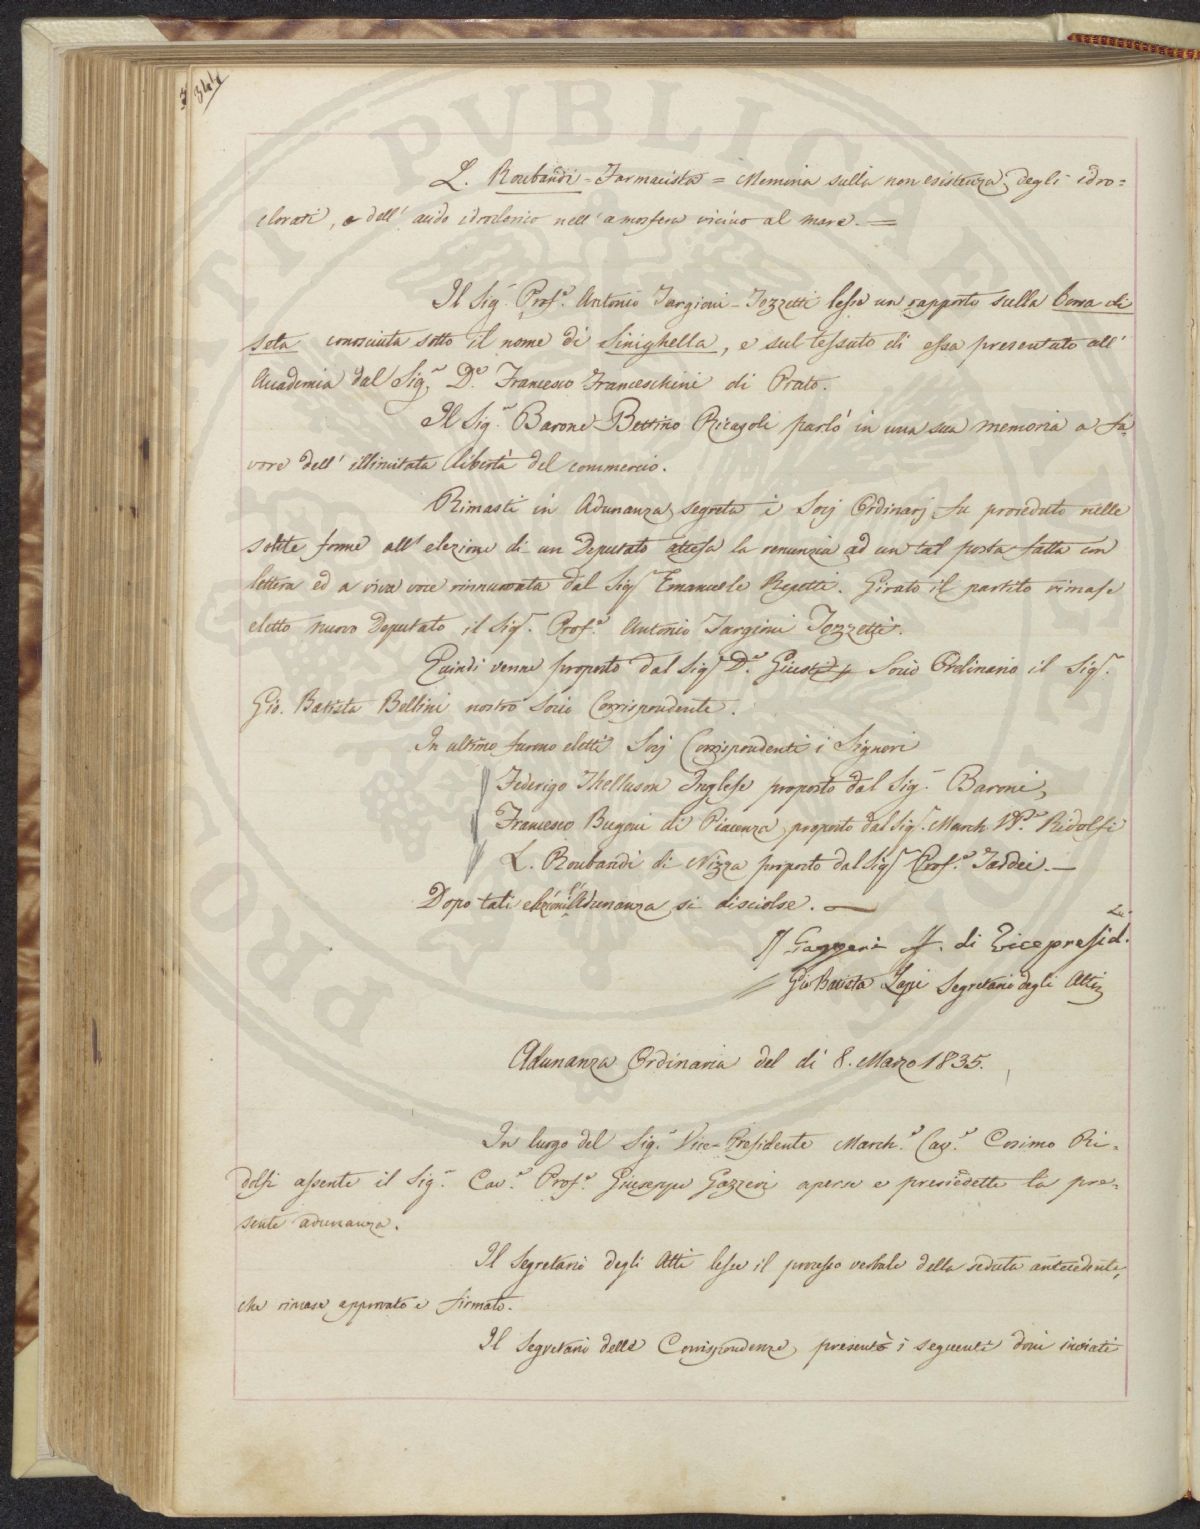 344
L. Roubaudi - Farmacista = Memoria sulla non esistenza degli idro=
clorati, e dell'acido idroclorico nell'atmosfera vicino al mare. =
Il Sig.r Prof.e Antonio Targioni-Tozzetti lesse un rapporto sulla borra di
seta conosciuta sotto il nome di Sinighella, e sul tessuto di essa presentato all'
Accademia dal Sig.r D.e Francesco Franceschini di Prato.
Il Sig.r Barone Bettino Ricasoli parlò in una sua memoria a fa=
vore dell'illimitata libertà del commercio.
Rimasti in Adunanza segreta i Socj Ordinarj fu proceduto nelle
solite forme all'elezione di un Deputato attesa la renunzia ad un tal posto fatta con
lettera ed a viva voce rinnuovata dal Sig.r Emanuele Repetti. Girato il partito rimase
eletto nuovo Deputato il Sig.r Prof.e Antonio Targioni Tozzetti.
Quindi venne proposto dal Sig.r D.e Giusti p. Socio Ordinario il Sig.r
Gio. Batista Bellini nostro Socio Corrispondente.
In ultimo furono eletti Socj Corrispondenti i Signori
Federigo Thelluson Inglese proposto dal Sig.r Baroni,
Francesco Bugoni di Piacenza, proposto dal Sig.r March. V.P.e Ridolfi
L. Roubaudi di Nizza proposto dal Sig.r Prof.e Taddei. —
Dopo tali elezioni l'Adunanza si disciolse. —
G Gazzeri ff. di Vicepresid.
Gio Batista Lapi Segretario degli Atti
Adunanza Ordinaria del dì 8. Marzo 1835.
In luogo del Sig.r Vice-Presidente March.e Cav.e Cosimo Ri=
dolfi assente il Sig.r Cav.e Prof.e Giuseppe Gazzeri aperse e presiedette la pre=
sente adunanza.
Il Segretario degli Atti lesse il processo verbale della seduta antecedente,
che rimase approvato e firmato.
Il Segretario delle Corrispondenze, presentò i seguenti doni inviati
PUBLICAE